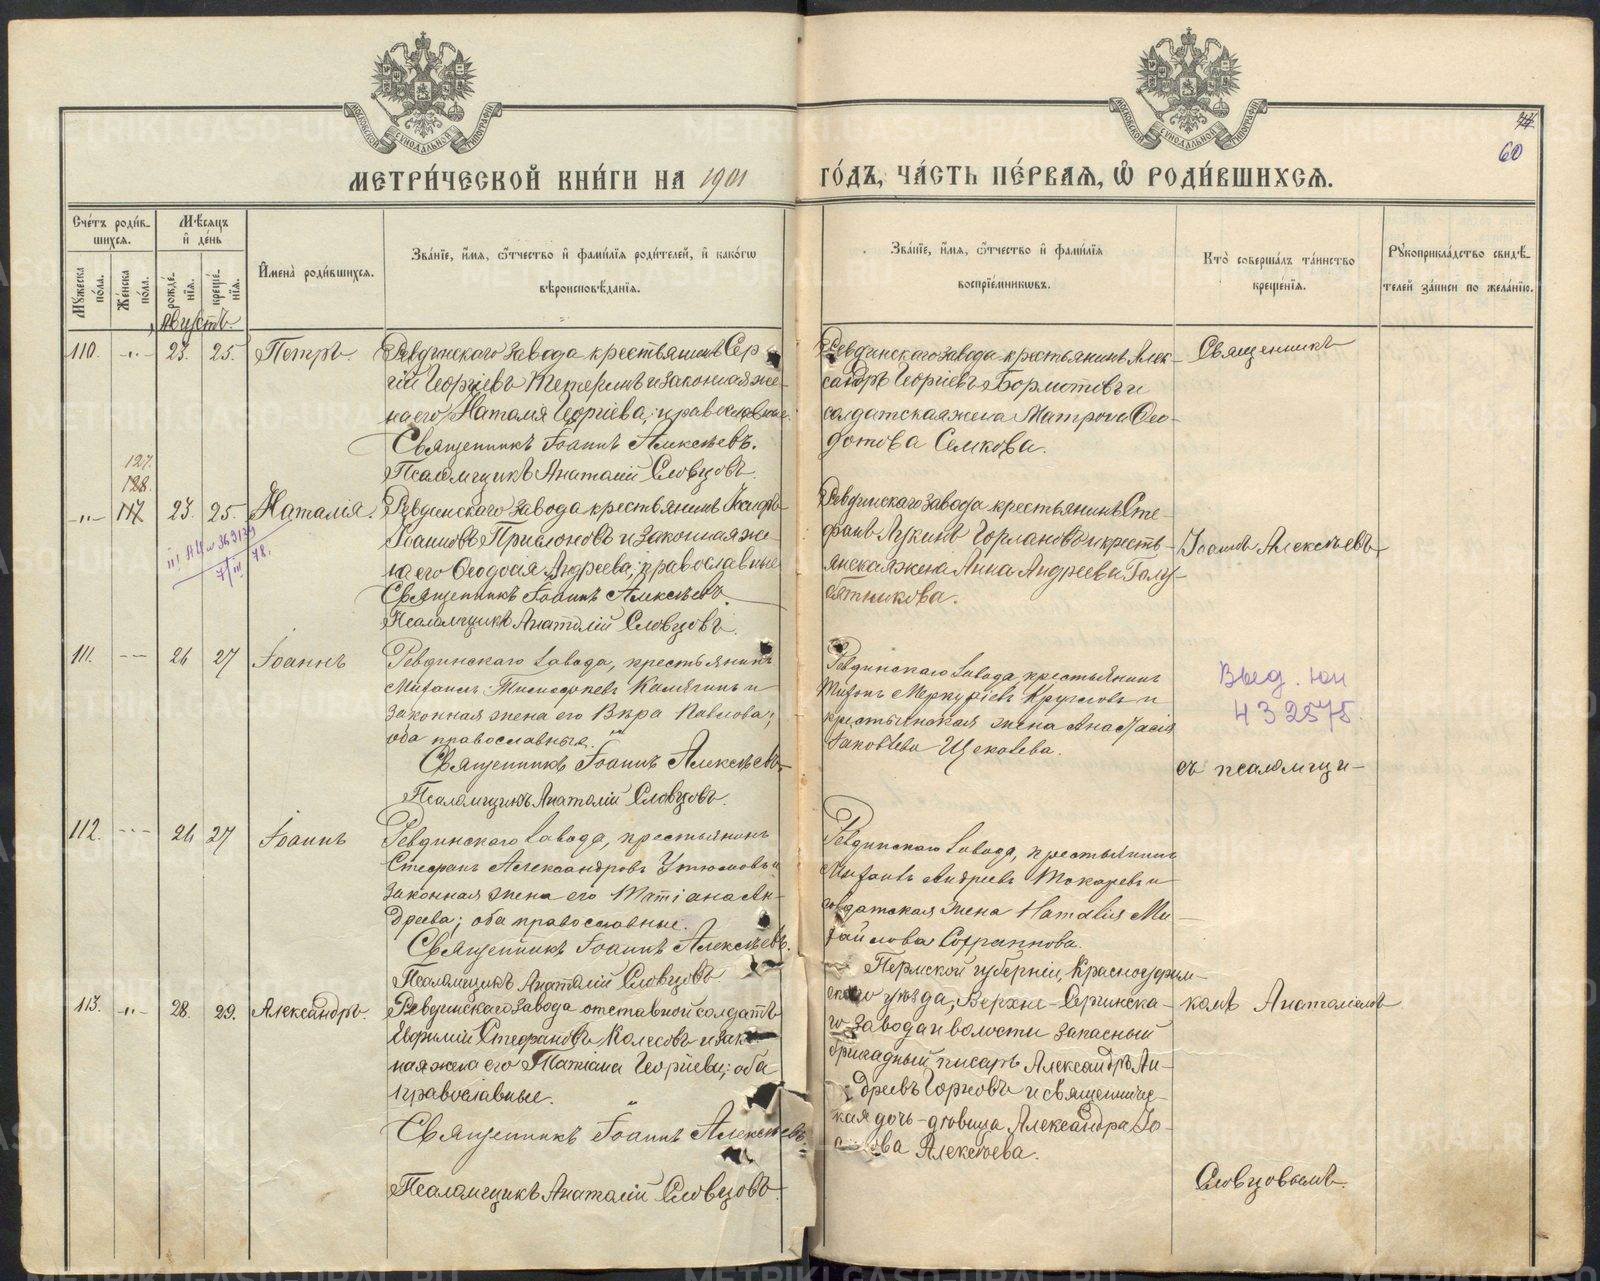 МОСКОВСКОЙ СѴНОДАЛЬНОЙ ТИПОГРАФІИ
МОСКОВСКОЙ СѴНОДАЛЬНОЙ ТИПОГРАФІИ
60
МЕТРИ́ЧЕСКОЙ КНИ́ГИ НА 1901 ГО́ДЪ, ЧА́СТЬ ПЕ́РВАЯ, Ѡ РОДИ́ВШИХСЯ.
Сче́тъ роди́в-
шихся.
Мꙋжеска по́ла.
Же́нска по́ла.
Мѣ́сяцъ
и҆ де́нь
рожде́нїя.
креще́нїя.
И҆мена̀ роди́вшихся.
Зва́нїе, и҆́мя, ѻ҆́тчество и҆ фами́лїя роди́телей, и҆ како́гѡ
вѣроисповѣ́данїя.
Зва́нїе, и҆́мя, ѻ҆́тчество и҆ фами́лїя
воспрїе́мникѡвъ.
Кто̀ соверша́лъ та́инство
креще́нїя.
Рꙋкоприкла́дство свидѣ́-
телей за́писи по жела́нїю.
Августъ
110. -„- 23. 25. Петръ.
Ревдинскаго завода крестьянинъ Сер
гій Георгіевъ Тетеринъ и законная же-
на его Наталія Георгіева, православные.
Священникъ Іоаннъ Алексѣевъ.
Псаломщикъ Анатолій Словцовъ.
Ревдинскаго завода крестьянинъ Алек-
сандръ Георгіевъ Бормотовъ и
солдатская жена Матрона Ѳео-
дотова Семкова.
Священникъ
127.
128.
-„- 117 23. 25. Наталія.
Ревдинскаго завода крестьянинъ
Іоанновъ и законная же-
на его Ѳеодосія Андреева, православные
Священникъ Іоаннъ Алексѣевъ.
Псаломщикъ Анатолій Словцовъ.
Ревдинскаго завода крестьянинъ Сте-
фанъ Лукинъ Горлановъ и кресть-
янская жена Анна Андреева Голу-
бятникова.
Іоаннъ Алексѣевъ
111. --- 26 27 Іоаннъ
Ревдинскаго завода, крестьянинъ
Михаилъ Тимофеевъ Калягинъ и
законная жена его Вѣра Павлова;
оба православные.
Священникъ Іоаннъ Алексѣевъ.
Псаломщикъ Анатолій Словцовъ.
Ревдинскаго завода, крестьянинъ
Тихонъ Меркуріевъ Кругловъ и
крестьянская жена Анастасія
Іаковлева Щекалева.
Выд.
432575.
съ псаломщи-
112. --- 26 27 Іоаннъ
Ревдинскаго завода, крестьянинъ
Стефанъ Александровъ Утюмовъ и
законная жена его Татіана Ан-
дреева; оба православные.
Священникъ Іоаннъ Алексѣевъ.
Псаломщикъ Анатолій Словцовъ.
Ревдинскаго завода, крестьянинъ
Михаилъ Андреевъ Токаревъ и
солдатская жена Наталія Ми-
хайлова Софронова.
113. -„- 28. 29. Александръ.
Ревдинскаго завода отставной солдатъ
Евфимій Стефановъ Колесовъ и зако-
ная жена его Татіана Георгіева; оба
православные.
Священникъ Іоаннъ Алексѣевъ.
Псаломщикъ Анатолій Словцовъ.
Пермской губерніи, Красноуфим-
скаго уѣзда, Верхне-Сергинска-
го завода и волости запасный
бригадный писарь Александръ Ан-
дреевъ Горновъ и священниче-
ская дочь-дѣвица Александра Іо-
анова Алексѣева.
комъ Анатоліемъ
Словцовымъ.